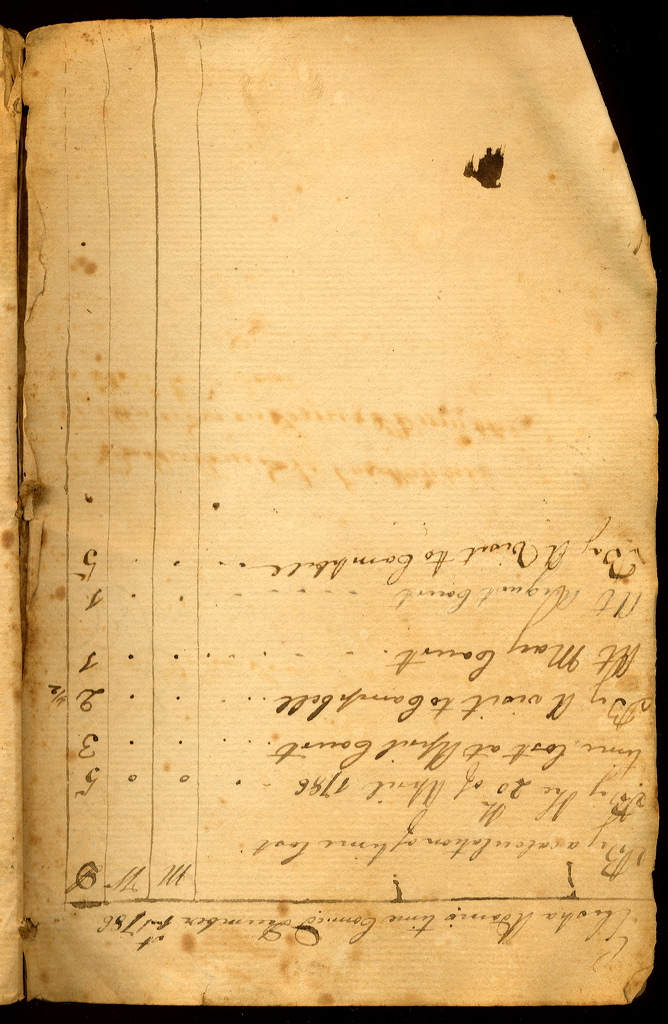 Elisha Adams time Commd December 1st 1786
M W D
By a calculation of time lost
By the 20th of April 1786 - - 0 0 5
time lost at April Court . . 3
By A visit to Campbell . . . 2 1/2
At May Court . . . 1
At August Court . . . 1
By A visit to Campbell . . . 5